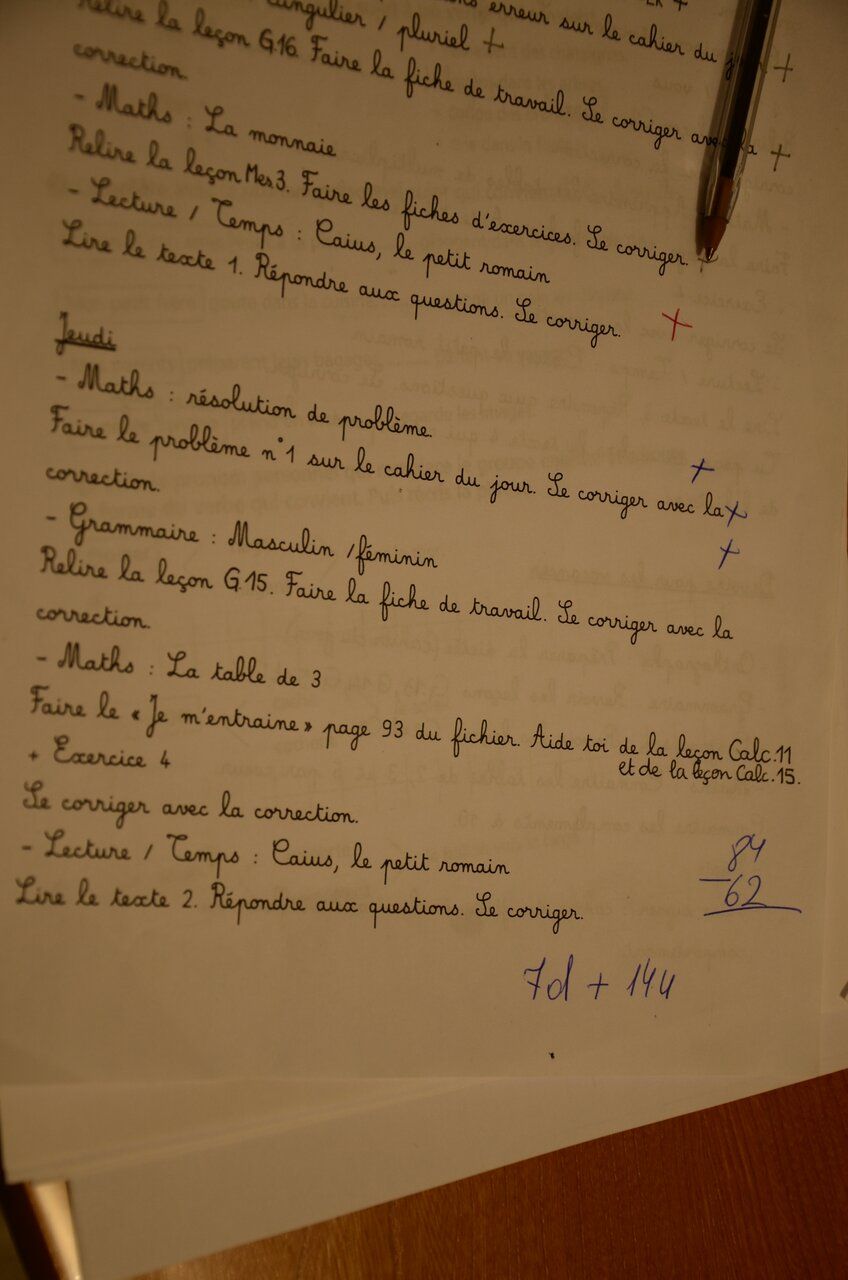 erreur sur le cahier du jour +
singulier / pluriel +
Relire la leçon G.16. Faire la fiche de travail. Se corriger avec la +
correction.
- Maths : La monnaie
Relire la leçon Mes 3. Faire les fiches d'exercices. Se corriger. +
- Lecture / Temps : Caius, le petit romain
Lire le texte 1. Répondre aux questions. Se corriger. +
Jeudi
- Maths : résolution de problème. +
Faire le problème n°1 sur le cahier du jour. Se corriger avec la +
correction.
- Grammaire : Masculin /féminin +
Relire la leçon G.15. Faire la fiche de travail. Se corriger avec la
correction.
- Maths : La table de 3
Faire le « Je m'entraine » page 93 du fichier. Aide toi de la leçon Calc.11
et de la leçon Calc.15.
+ Exercice 4
Se corriger avec la correction.
- Lecture / Temps : Caius, le petit romain
Lire le texte 2. Répondre aux questions. Se corriger.
84
- 62
7d + 14u